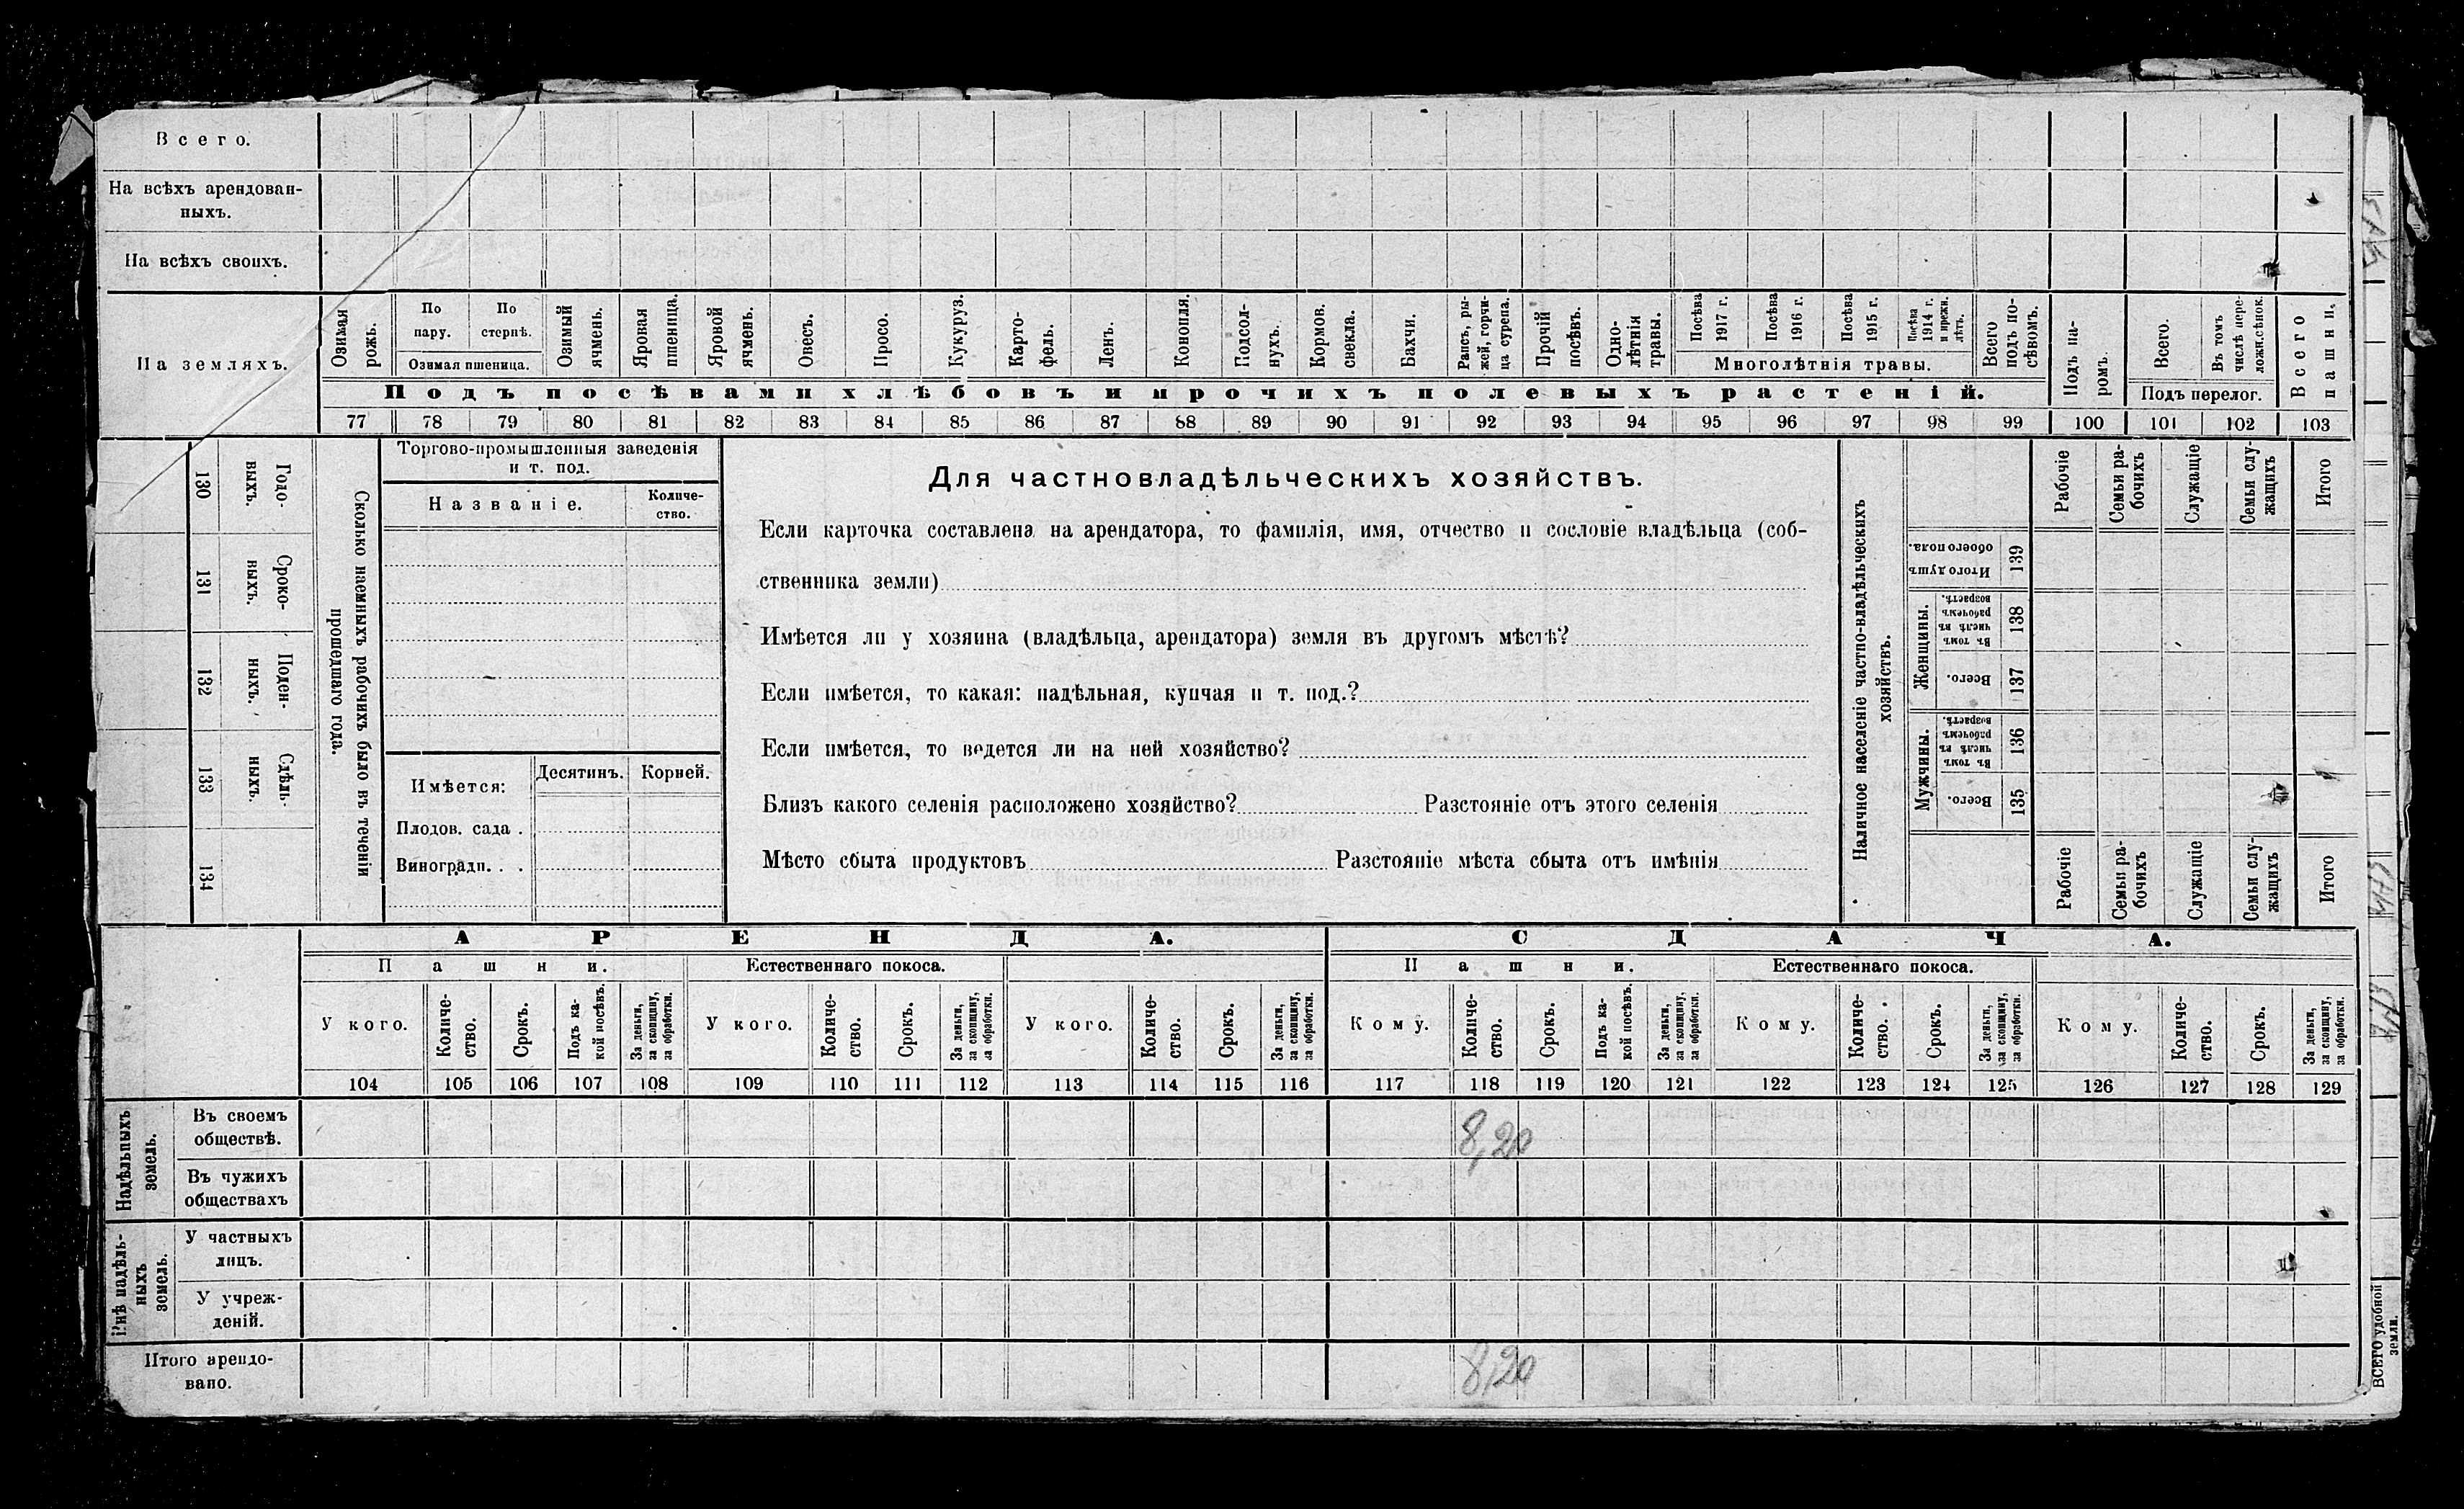 Всего.
На всѣхъ арендован-
ныхъ.
На всѣхъ своихъ.
На земляхъ.
Озимая рожь.
По пару.
По стернѣ.
Озимая пшеница.
Озимый ячмень.
Яровая пшеница.
Яровой ячмень.
Овесъ.
Просо.
Кукуруз.
Карто-
фель.
Ленъ.
Конопля.
Подсол-
нухъ.
Кормов. свекла.
Бахчи.
Рапсъ, ры-
жей, горчи-
ца сурепа.
Прочій посѣвъ.
Одно-
лѣтнія травы.
Посѣва 1917 г.
Посѣва 1916 г.
Посѣва 1915 г.
Посѣва 1914 г. и прежн. лѣтъ.
Многолѣтнія травы.
Всего подъ по-
сѣвомъ.
Подъ па-
ромъ.
Всего.
Въ томъ числѣ пере-
ложн.сѣнок.
Подъ перелог.
Всего пашни.
Подъ посѣвами хлѣбовъ и прочихъ полевыхъ растеній.
77 78 79 80 81 82 83 84 85 86 87 88 89 90 91 92 93 94 95 96 97 98 99 100 101 102 103
130 Годо-
выхъ.
131 Сроко-
выхъ.
132 Поден-
ныхъ.
133 Сдѣль-
ныхъ.
134
Сколько наемныхъ рабочихъ было въ теченіи
прошедшаго года.
Торгово-промышленныя заведенія
и т. под.
Названіе.
Количе-
ство.
Имѣется:
Десятинъ.
Корней.
Плодов. сада .
Виноградн. . .
Для частновладѣльческихъ хозяйствъ.
Если карточка составлена на арендатора, то фамилія, имя, отчество и сословіе владѣльца (соб-
ственника земли)
Имѣется ли у хозяина (владѣльца, арендатора) земля въ другомъ мѣстѣ?
Если имѣется, то какая: надѣльная, купчая и т. под.?
Если имѣется, то ведется ли на ней хозяйство?
Близъ какого селенія расположено хозяйство? Разстояніе отъ этого селенія
Мѣсто сбыта продуктовъ Разстояніе мѣста сбыта отъ имѣнія
Наличное населеніе частно-владѣльческихъ
хозяйствъ.
Рабочіе
Семьи ра-
бочихъ
Служащіе
Семьи слу-
жащихъ
Итого
Итого душъ обоего пола.
139
Женщины.
Въ томъ числѣ въ рабочемъ возрастѣ.
138
Всего.
137
Мужчины.
Въ томъ числѣ въ рабочемъ возрастѣ.
136
Всего.
135
Рабочіе
Семьи ра-
бочихъ
Служащіе
Семьи слу-
жащихъ
Итого
АРЕНДА. СДАЧА.
Пашни. Естественнаго покоса. Пашни. Естественнаго покоса.
У кого.
Количе-
ство.
Срокъ.
Подъ ка-
кой посѣвъ.
За деньги, за скопщину, за обработки.
У кого.
Количе-
ство.
Срокъ.
За деньги, за скопщину, за обработки.
У кого.
Количе-
ство.
Срокъ.
За деньги, за скопщину, за обработки.
Кому.
Количе-
ство.
Срокъ.
Подъ ка-
кой посѣвъ.
За деньги, за скопщину, за обработки.
Кому.
Количе-
ство.
Срокъ.
За деньги, за скопщину, за обработки.
Кому.
Количе-
ство.
Срокъ.
За деньги, за скопщину, за обработки.
104 105 106 107 108 109 110 111 112 113 114 115 116 117 118 119 120 121 122 123 124 125 126 127 128 129
Надѣльныхъ
земель.
Въ своемъ
обществѣ.
8,20
Въ чужихъ
обществахъ
Внѣ надѣль-
ныхъ
земель.
У частныхъ
лицъ.
У учреж-
деній.
Итого арендо-
вано.
8,20
ВСЕГО удобной
земли.